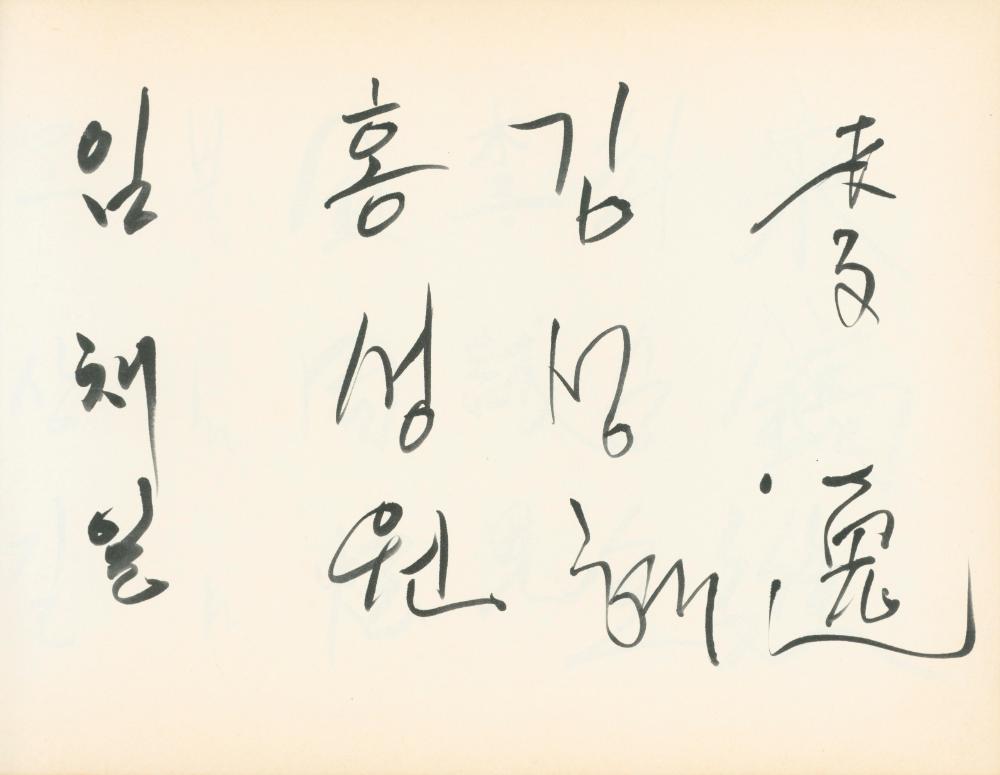 李逸
김성해
홍성원
임채일